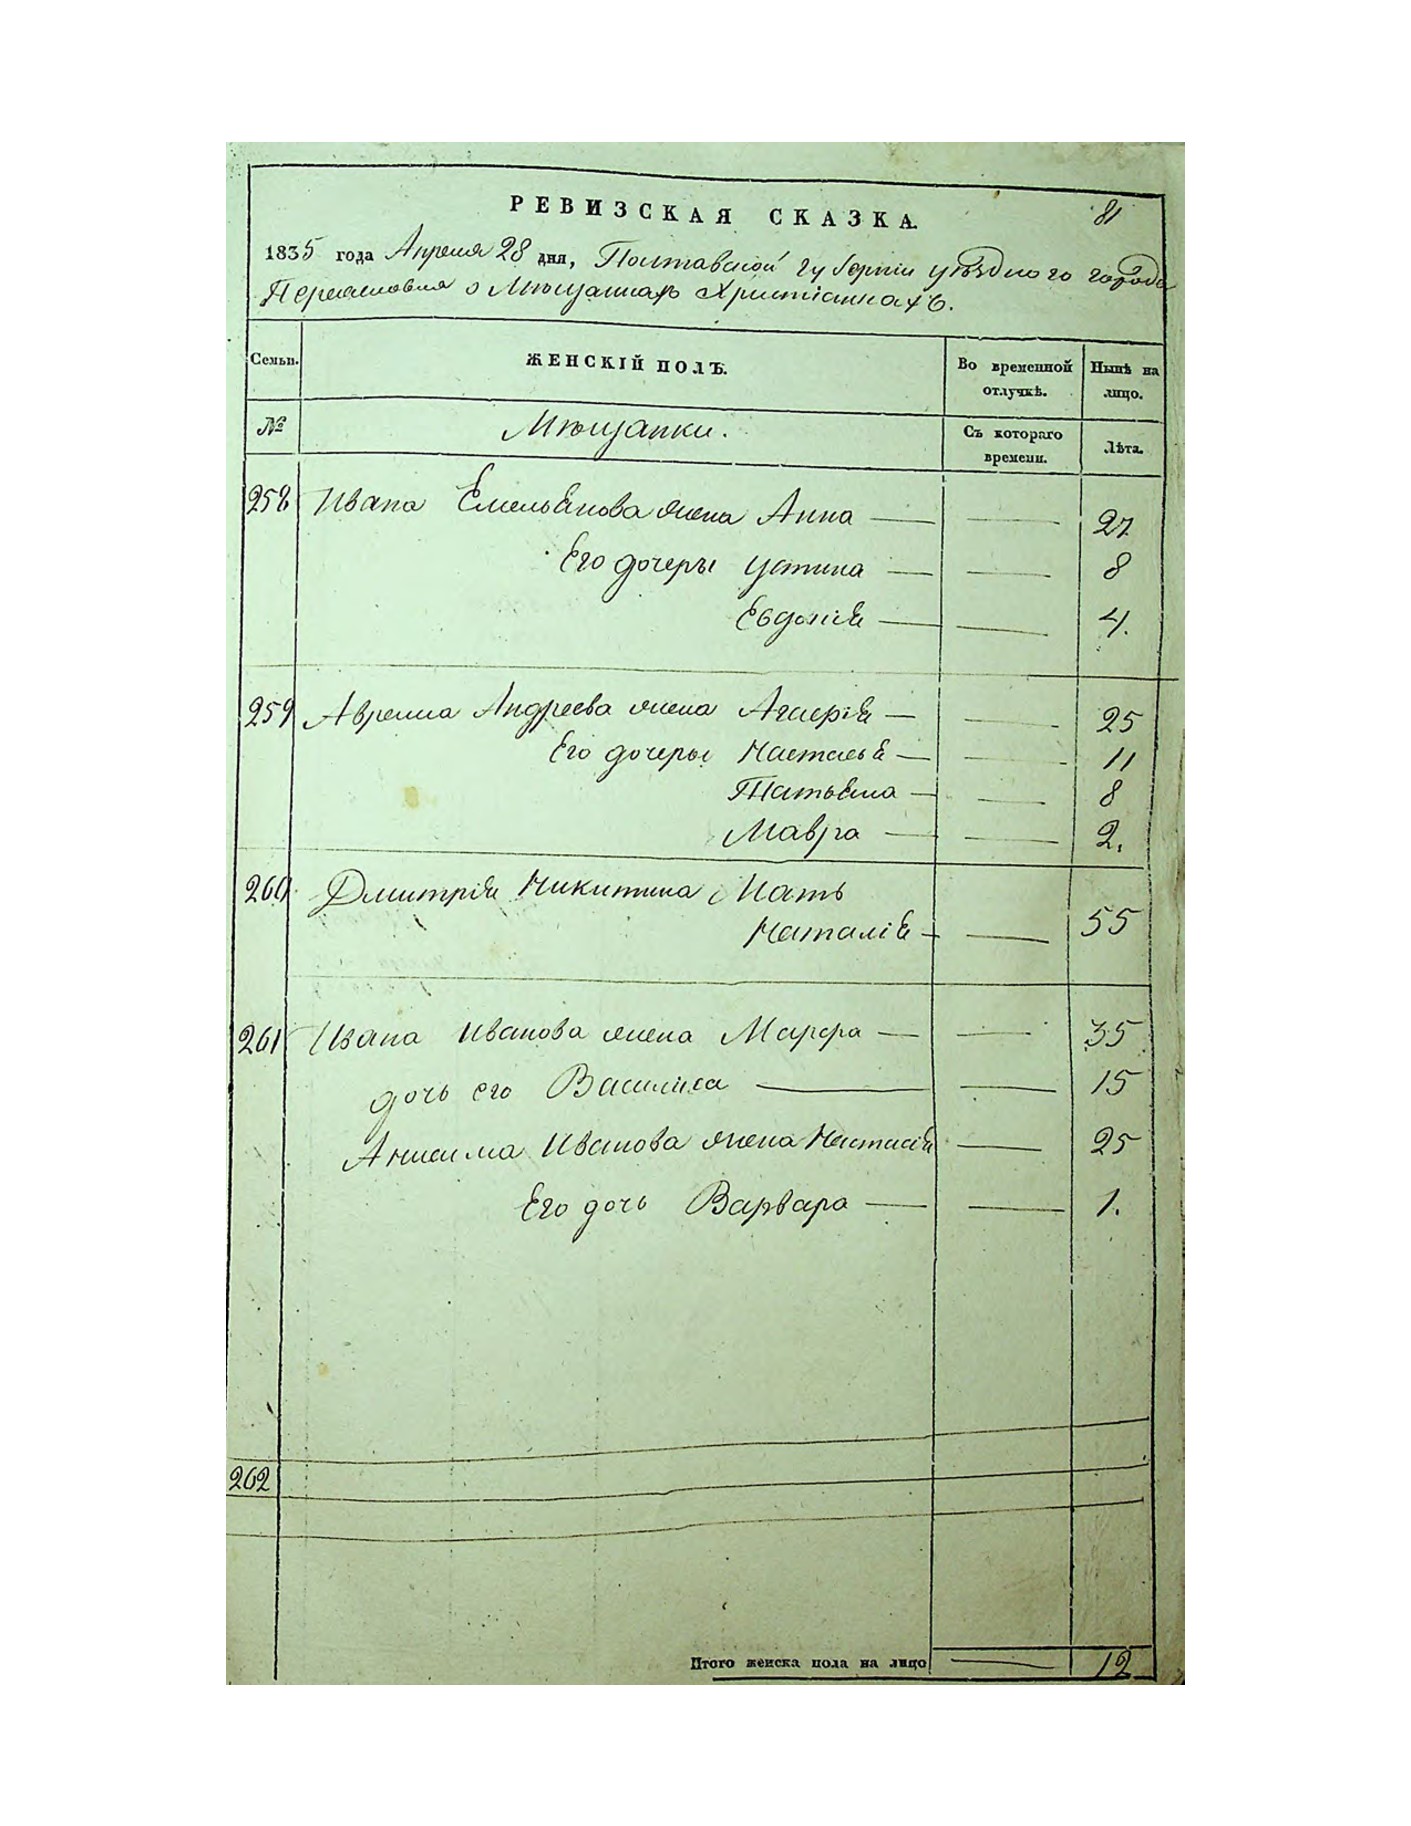 РЕВИЗСКАЯ СКАЗКА.
81
1835 года Апреля 28 дня, Полтавской губернiи уѣзднаго города
Переяславля о Мѣщанахъ Христiанахъ.
Семьи.
ЖЕНСКIЙ ПОЛЪ.
Во временной отлучкѣ.
Нынѣ на лицо.
№
Мѣщанки.
Съ котораго времени.
Лѣта.
258 Ивана Емельянова жена Анна — — 27
Его дочеры Устина — — 8
Евдокiя — — 4.
259 Андреева жена Агафiя — — 25
Его дочеры Настасья — — 11
Татьяна — — 8
Мавра — — 2.
260 Дмитрiя Никитина Мать
Наталiя — — 55
261 Ивана Иванова жена Марфа — — 35
дочь его Василиса — — 15
Анисима Иванова жена Настасiя — 25
Его дочь Варвара — — 1.
262
Итого женска пола на лицо — 12